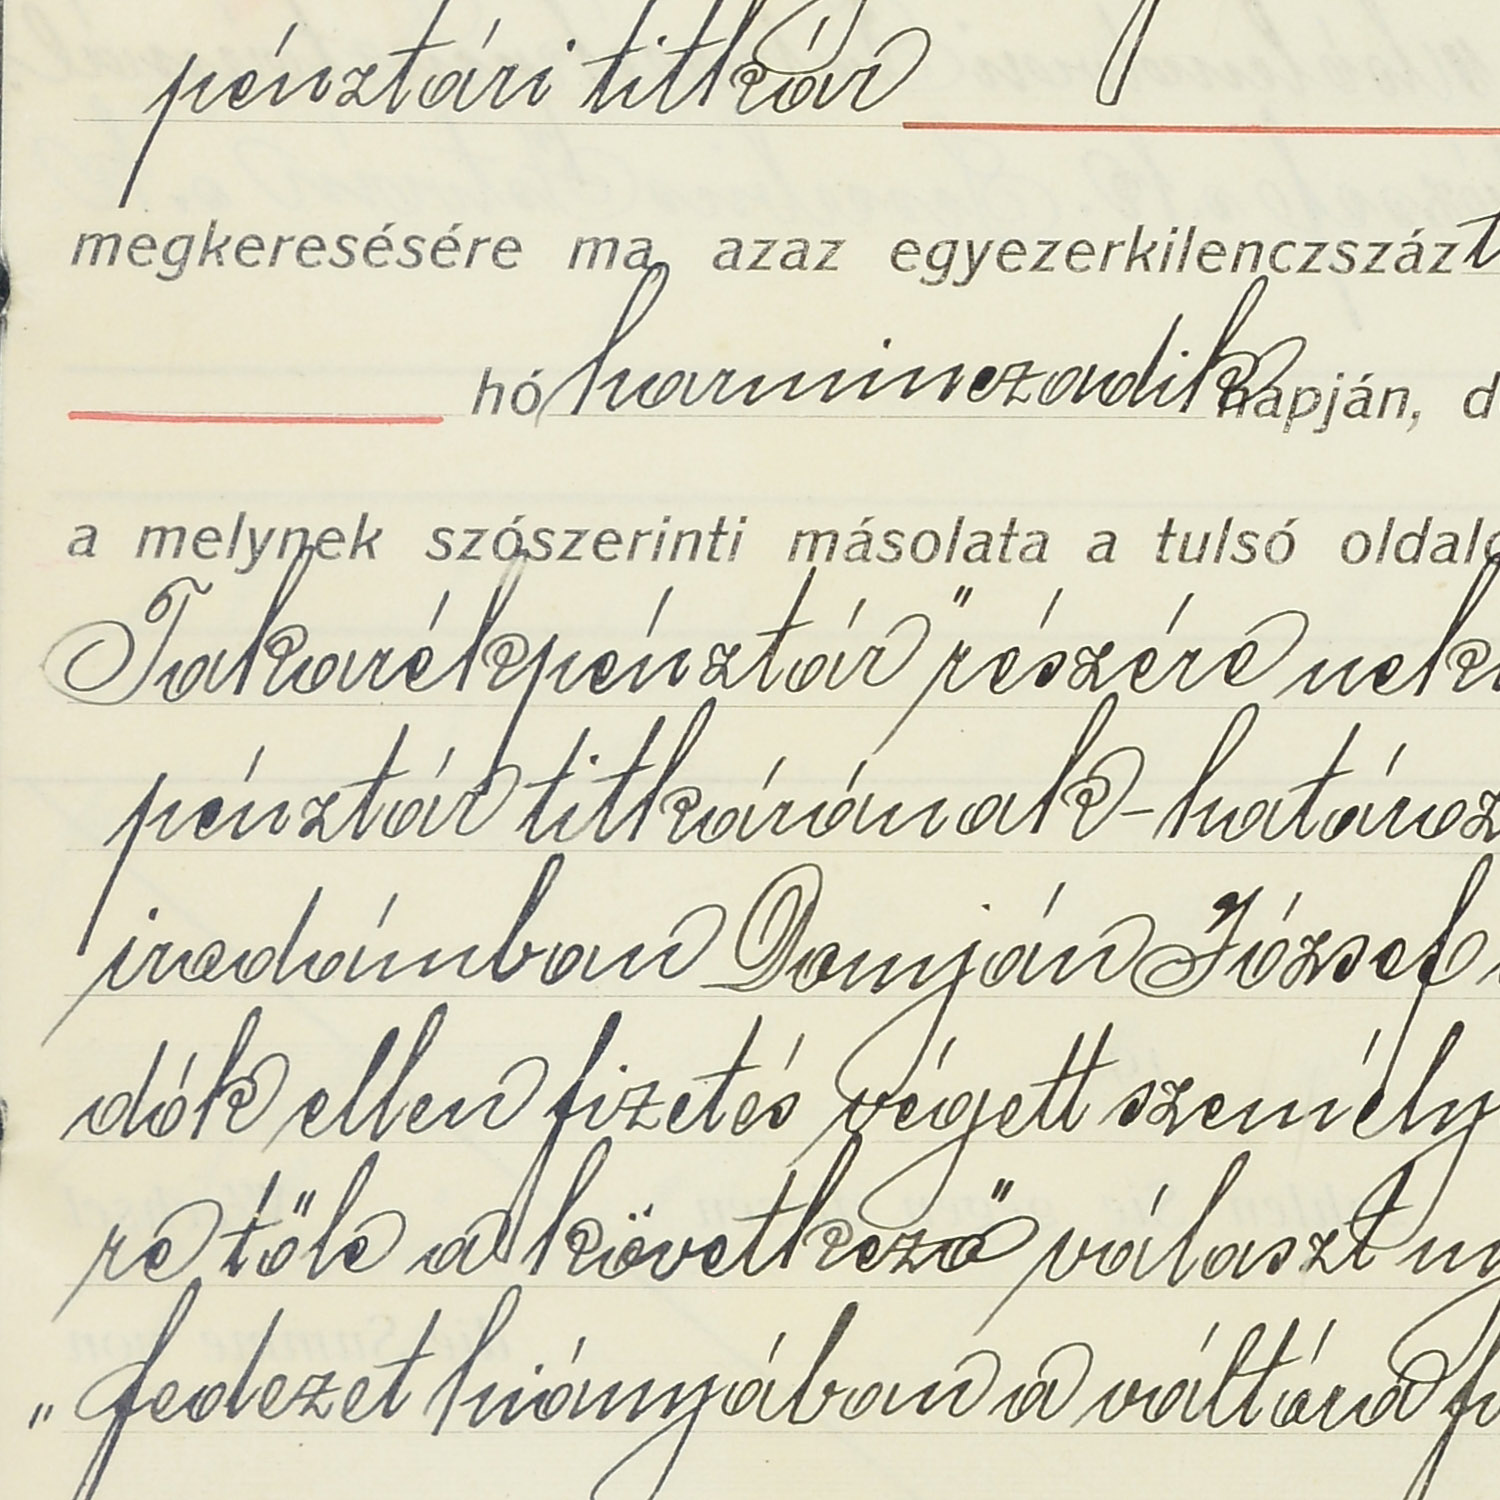 pénztári titkár
megkeresésére ma, azaz egyezerkilenczszáz
hó harminczadik napján, d
a melynek szószerinti másolata a tulsó oldalo
Takarékpénztár" részére nek
pénztár titkárának - határoz
irodámban Domján József
dók ellen fizetés végett személy
re tőle a következő választ ny
„fedezet hiányában a váltóra f